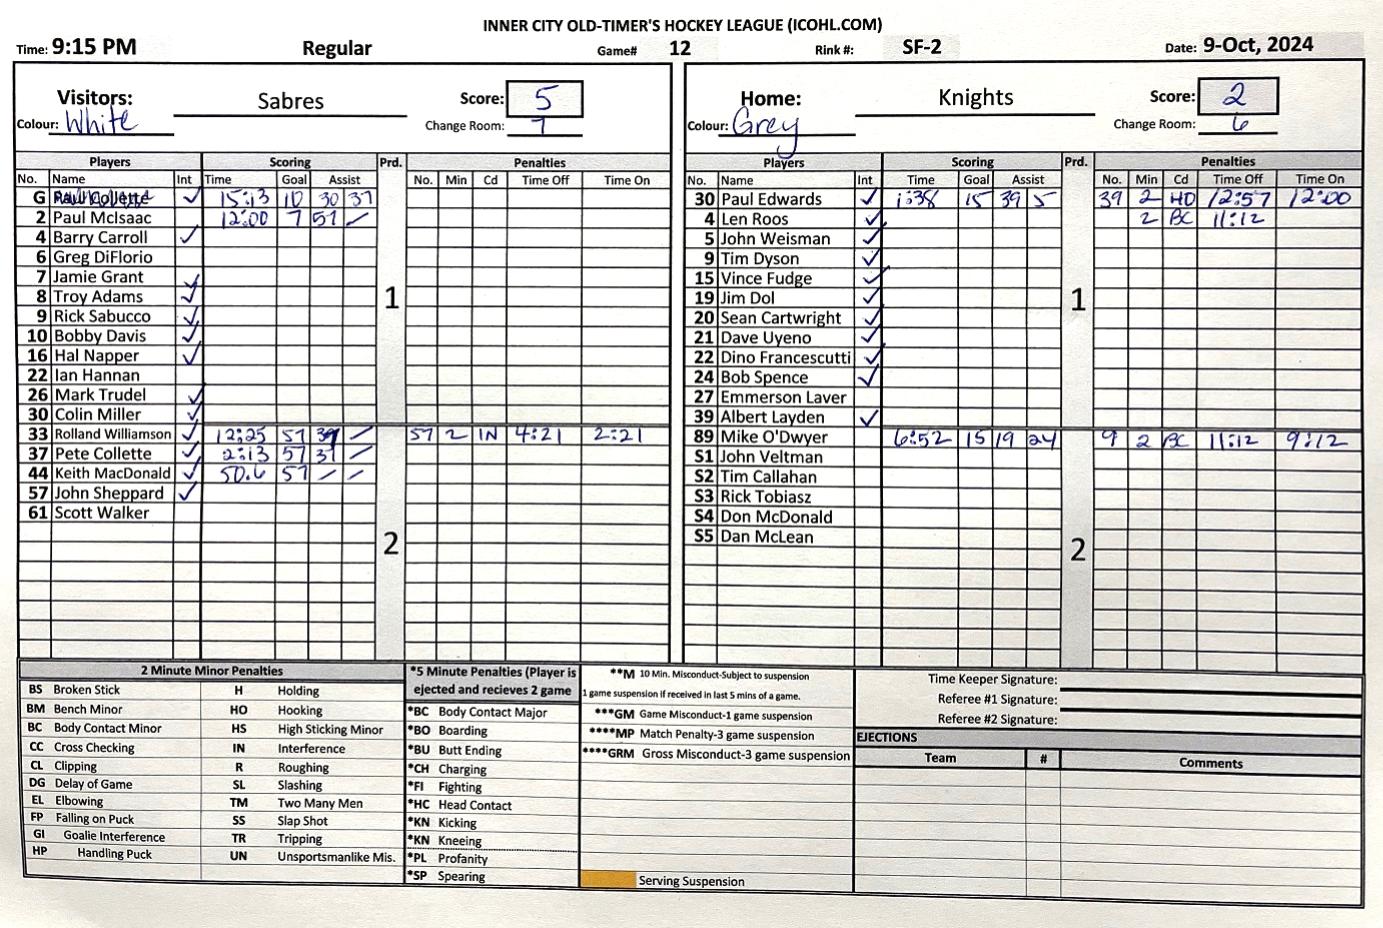 INNER CITY OLD-TIMER'S HOCKEY LEAGUE (ICOHL.COM)
Time: 9:15 PM Regular Game# 12 Rink #: SF-2 Date: 9-Oct, 2024
Visitors: Sabres Score: 5
Colour: White Change Room: 7
Players Scoring Prd. Penalties
No. Name Int Time Goal Assist No. Min Cd Time Off Time On
G ✓ 15:13 10 30 37
2 Paul McIsaac 12:00 7 57 /
4 Barry Carroll ✓
6 Greg DiFlorio
7 Jamie Grant ✓
8 Troy Adams ✓
1
9 Rick Sabucco ✓
10 Bobby Davis ✓
16 Hal Napper ✓
22 Ian Hannan
26 Mark Trudel ✓
30 Colin Miller ✓
33 Rolland Williamson ✓ 12:25 57 / 57 2 IN 4:21 2:21
37 Pete Collette ✓ 2:13 57 37 /
44 Keith MacDonald ✓ 50.6 57 / /
57 John Sheppard ✓
61 Scott Walker
2
Home: Knights Score: 2
Colour: Grey Change Room: 6
Players Scoring Prd. Penalties
No. Name Int Time Goal Assist No. Min Cd Time Off Time On
30 Paul Edwards ✓ 1:38 15 39 5 39 2 HO 12:57 12:00
4 Len Roos ✓ 2 BC 11:12
5 John Weisman ✓
9 Tim Dyson ✓
15 Vince Fudge ✓
19 Jim Dol ✓
1
20 Sean Cartwright ✓
21 Dave Uyeno ✓
22 Dino Francescutti ✓
24 Bob Spence ✓
27 Emmerson Laver
39 Albert Layden ✓
89 Mike O'Dwyer 6:52 15 19 24 9 2 BC 11:12 9:12
S1 John Veltman
S2 Tim Callahan
S3 Rick Tobiasz
S4 Don McDonald
S5 Dan McLean
2
2 Minute Minor Penalties
BS Broken Stick H Holding
BM Bench Minor HO Hooking
BC Body Contact Minor HS High Sticking Minor
CC Cross Checking IN Interference
CL Clipping R Roughing
DG Delay of Game SL Slashing
EL Elbowing TM Two Many Men
FP Falling on Puck SS Slap Shot
GI Goalie Interference TR Tripping
HP Handling Puck UN Unsportsmanlike Mis.
*5 Minute Penalties (Player is
ejected and recieves 2 game
*BC Body Contact Major
*BO Boarding
*BU Butt Ending
*CH Charging
*FI Fighting
*HC Head Contact
*KN Kicking
*KN Kneeing
*PL Profanity
*SP Spearing
**M 10 Min. Misconduct-Subject to suspension
1 game suspension if received in last 5 mins of a game.
***GM Game Misconduct-1 game suspension
****MP Match Penalty-3 game suspension
****GRM Gross Misconduct-3 game suspension
Serving Suspension
Time Keeper Signature:
Referee #1 Signature:
Referee #2 Signature:
EJECTIONS
Team # Comments